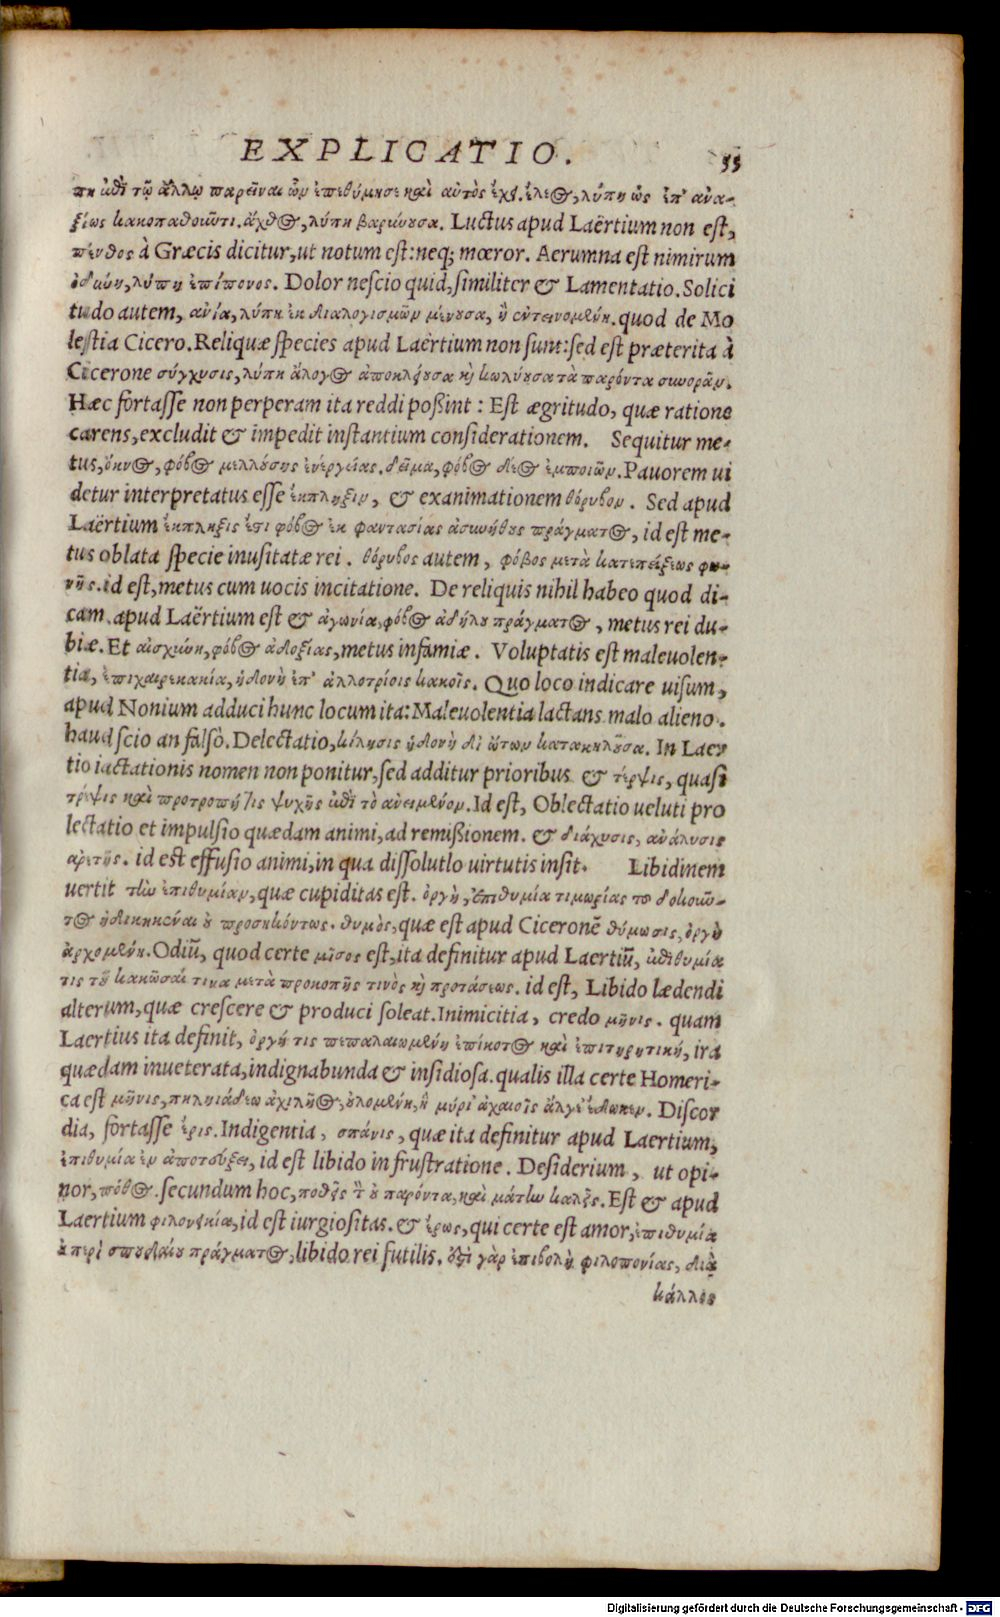 EXPLICATIO. 55
πη ἐπὶ τῷ ἄλλῳ παρεῖναι ὧν ἐπεθύμησε καὶ αὐτὸς ἔχει. ἔλεος, λύπη ὡς ἐπ' ἀνα-
ξίως κακοπαθοιῶτι. ἄχθος, λύπη βαρύνουσα. Luctus apud Laërtium non est,
πένθος à Græcis dicitur, ut notum est: neq; mœror. Aerumna est nimirum
ὀδύνη, λύπη ἐπίπονος. Dolor nescio quid, similiter & Lamentatio. Solici
tudo autem, ἀνία, λύπη ἐκ διαλογισμῶν μένουσα, ἢ ἐντεινομένη. quod de Mo
lestia Cicero. Reliquæ species apud Laërtium non sunt: sed est præterita à
Cicerone σύγχυσις, λύπη ἄλογος ἀποκλείουσα καὶ κωλύουσα τὰ παρόντα συνορᾶν.
Hæc fortasse non perperam ita reddi poßint: Est ægritudo, quæ ratione
carens, excludit & impedit instantium considerationem. Sequitur me-
tus, ὄκνος, φόβος μελλούσης ἐνεργείας. δεῖμα, φόβος δέος ἐμποιῶν. Pauorem ui
detur interpretatus esse ἔκπληξιν, & exanimationem θόρυβον. Sed apud
Laërtium ἔκπληξις ἐστι φόβος ἐκ φαντασίας ἀσυνήθους πράγματος, id est me-
tus oblata specie inusitatæ rei. θόρυβος autem, φόβος μετὰ κατεπείξεως φω-
νῆς. id est, metus cum uocis incitatione. De reliquis nihil habeo quod di-
cam. apud Laërtium est & ἀγωνία, φόβος ἀδήλου πράγματος, metus rei du-
biæ. Et αἰσχύνη, φόβος ἀδοξίας, metus infamiæ. Voluptatis est maleuolen-
tia, ἐπιχαιρεκακία, ἡδονὴ ἐπ' ἀλλοτρίοις κακοῖς. Quo loco indicare uisum,
apud Nonium adduci hunc locum ita: Maleuolentia lactans malo alieno.
haud scio an falsò. Delectatio, κήλησις ἡδονὴ δι' ὤτων κατακηλοῦσα. In Laer
tio iactationis nomen non ponitur, sed additur prioribus & τέρψις, quasi
τρέψις καὶ προτροπή τις ψυχῆς ἐπὶ τὸ ἀνειμένον. Id est, Oblectatio ueluti pro
lectatio et impulsio quædam animi, ad remißionem. & διάχυσις, ἀνάλυσις
ἀρετῆς. id est effusio animi, in qua dissolutio uirtutis insit. Libidinem
uertit τὴν ἐπιθυμίαν, quæ cupiditas est. ὀργὴ, ἐπιθυμία τιμωρίας τοῦ δοκοιῶ-
τος ἠδικηκέναι οὐ προσηκόντως. θυμὸς, quæ est apud Ciceronē θύμωσις, ὀργὴ
ἀρχομένη. Odiū, quod certe μῖσος est, ita definitur apud Laertiū, ἐπιθυμία
τις τοῦ κακῶσαί τινα μετὰ προκοπῆς τινὸς καὶ προτάσεως. id est, Libido lædendi
alterum, quæ crescere & produci soleat. Inimicitia, credo μῆνις. quam
Laertius ita definit, ὀργή τις πεπαλαιωμένη ἐπίκοτος καὶ ἐπιτηρητική, ira
quædam inueterata, indignabunda & insidiosa. qualis illa certe Homeri-
ca est μῆνις, πηληιάδεω ἀχιλῆος, οὐλομένη, ἣ μύρι' ἀχαιοῖς ἄλγε' ἔθωκεν. Discor
dia, fortasse ἔρις. Indigentia, σπάνις, quæ ita definitur apud Laertium,
ἐπιθυμία ἐν ἀποτεύξει, id est libido in frustratione. Desiderium, ut opi-
nor, πόθος. secundum hoc, ποθεῖς τ' οὐ παρόντα, καὶ μάτην καλεῖς. Est & apud
Laertium φιλονεικία, id est iurgiositas. & ἔρως, qui certe est amor, ἐπιθυμία
οὐ περὶ σπουδαίου πράγματος, libido rei futilis. ἔστι γὰρ ἐπιβολὴ φιλοπονίας, διὰ
κάλλος
Digitalisierung gefördert durch die Deutsche Forschungsgemeinschaft - DFG